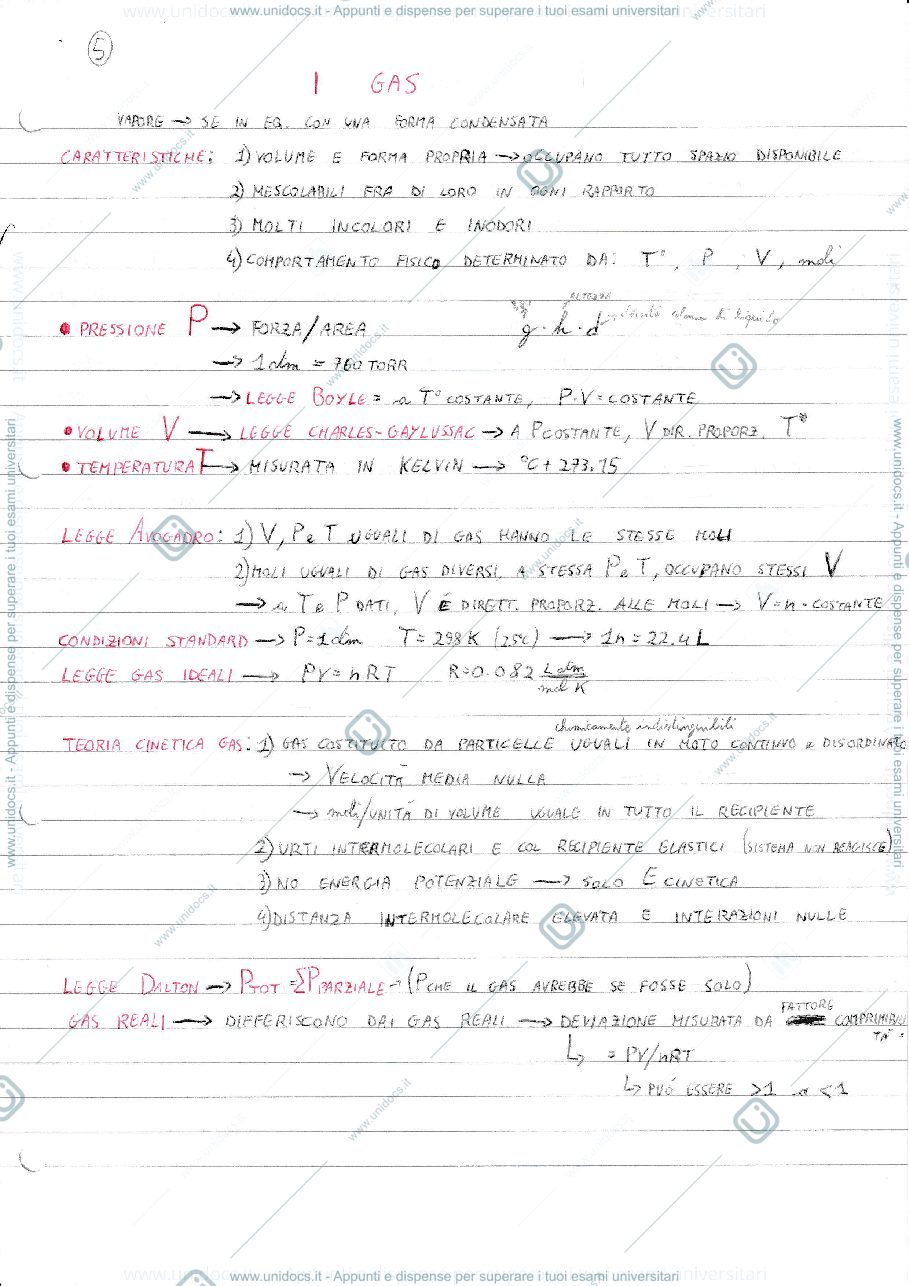 www.unidocs.it - Appunti e dispense per superare i tuoi esami universitari
5
I GAS
VAPORE → SE IN EQ. CON UNA FORMA CONDENSATA
CARATTERISTICHE: 1) VOLUME E FORMA PROPRIA → OCCUPANO TUTTO SPAZIO DISPONIBILE
2) MESCOLABILI FRA DI LORO IN OGNI RAPPORTO
3) MOLTI INCOLORI E INODORI
4) COMPORTAMENTO FISICO DETERMINATO DA: T°, P, V, moli
ALTEZZA
• PRESSIONE P → FORZA/AREA g · h · d → densità colonna di liquido
→ 1 atm = 760 TORR
→ LEGGE BOYLE = a T° COSTANTE, P·V = COSTANTE
• VOLUME V → LEGGE CHARLES-GAYLUSSAC → A P COSTANTE, V DIR. PROPORZ. T°
• TEMPERATURA T → MISURATA IN KELVIN → °C + 273.15
LEGGE AVOGADRO: 1) V, P e T UGUALI DI GAS HANNO LE STESSE MOLI
2) MOLI UGUALI DI GAS DIVERSI, A STESSA P e T, OCCUPANO STESSI V
→ a T e P DATI, V É DIRETT. PROPORZ. ALLE MOLI → V = n · COSTANTE
CONDIZIONI STANDARD → P = 1 atm T = 298 K (25C) → 1n = 22.4 L
LEGGE GAS IDEALI → PV = nRT R = 0.082 L atm / mol K
chimicamente indistinguibili
TEORIA CINETICA GAS: 1) GAS COSTITUITO DA PARTICELLE UGUALI IN MOTO CONTINVO e DISORDINATO
→ VELOCITÀ MEDIA NULLA
→ moli/UNITÀ DI VOLUME UGUALE IN TUTTO IL RECIPIENTE
2) URTI INTERMOLECOLARI E COL RECIPIENTE ELASTICI (SISTEMA NON REAGISCE)
3) NO ENERGIA POTENZIALE → SOLO E CINETICA
4) DISTANZA INTERMOLECOLARE ELEVATA E INTERAZIONI NULLE
LEGGE DALTON → PTOT = ΣPPARZIALE → (P CHE IL GAS AVREBBE SE FOSSE SOLO)
GAS REALI → DIFFERISCONO DAI GAS REALI → DEVIAZIONE MISURATA DA FATTORE COMPRIMIBILI
TÀ =
↳ = PV/nRT
↳ PUÓ ESSERE >1 o <1
www.unidocs.it - Appunti e dispense per superare i tuoi esami universitari